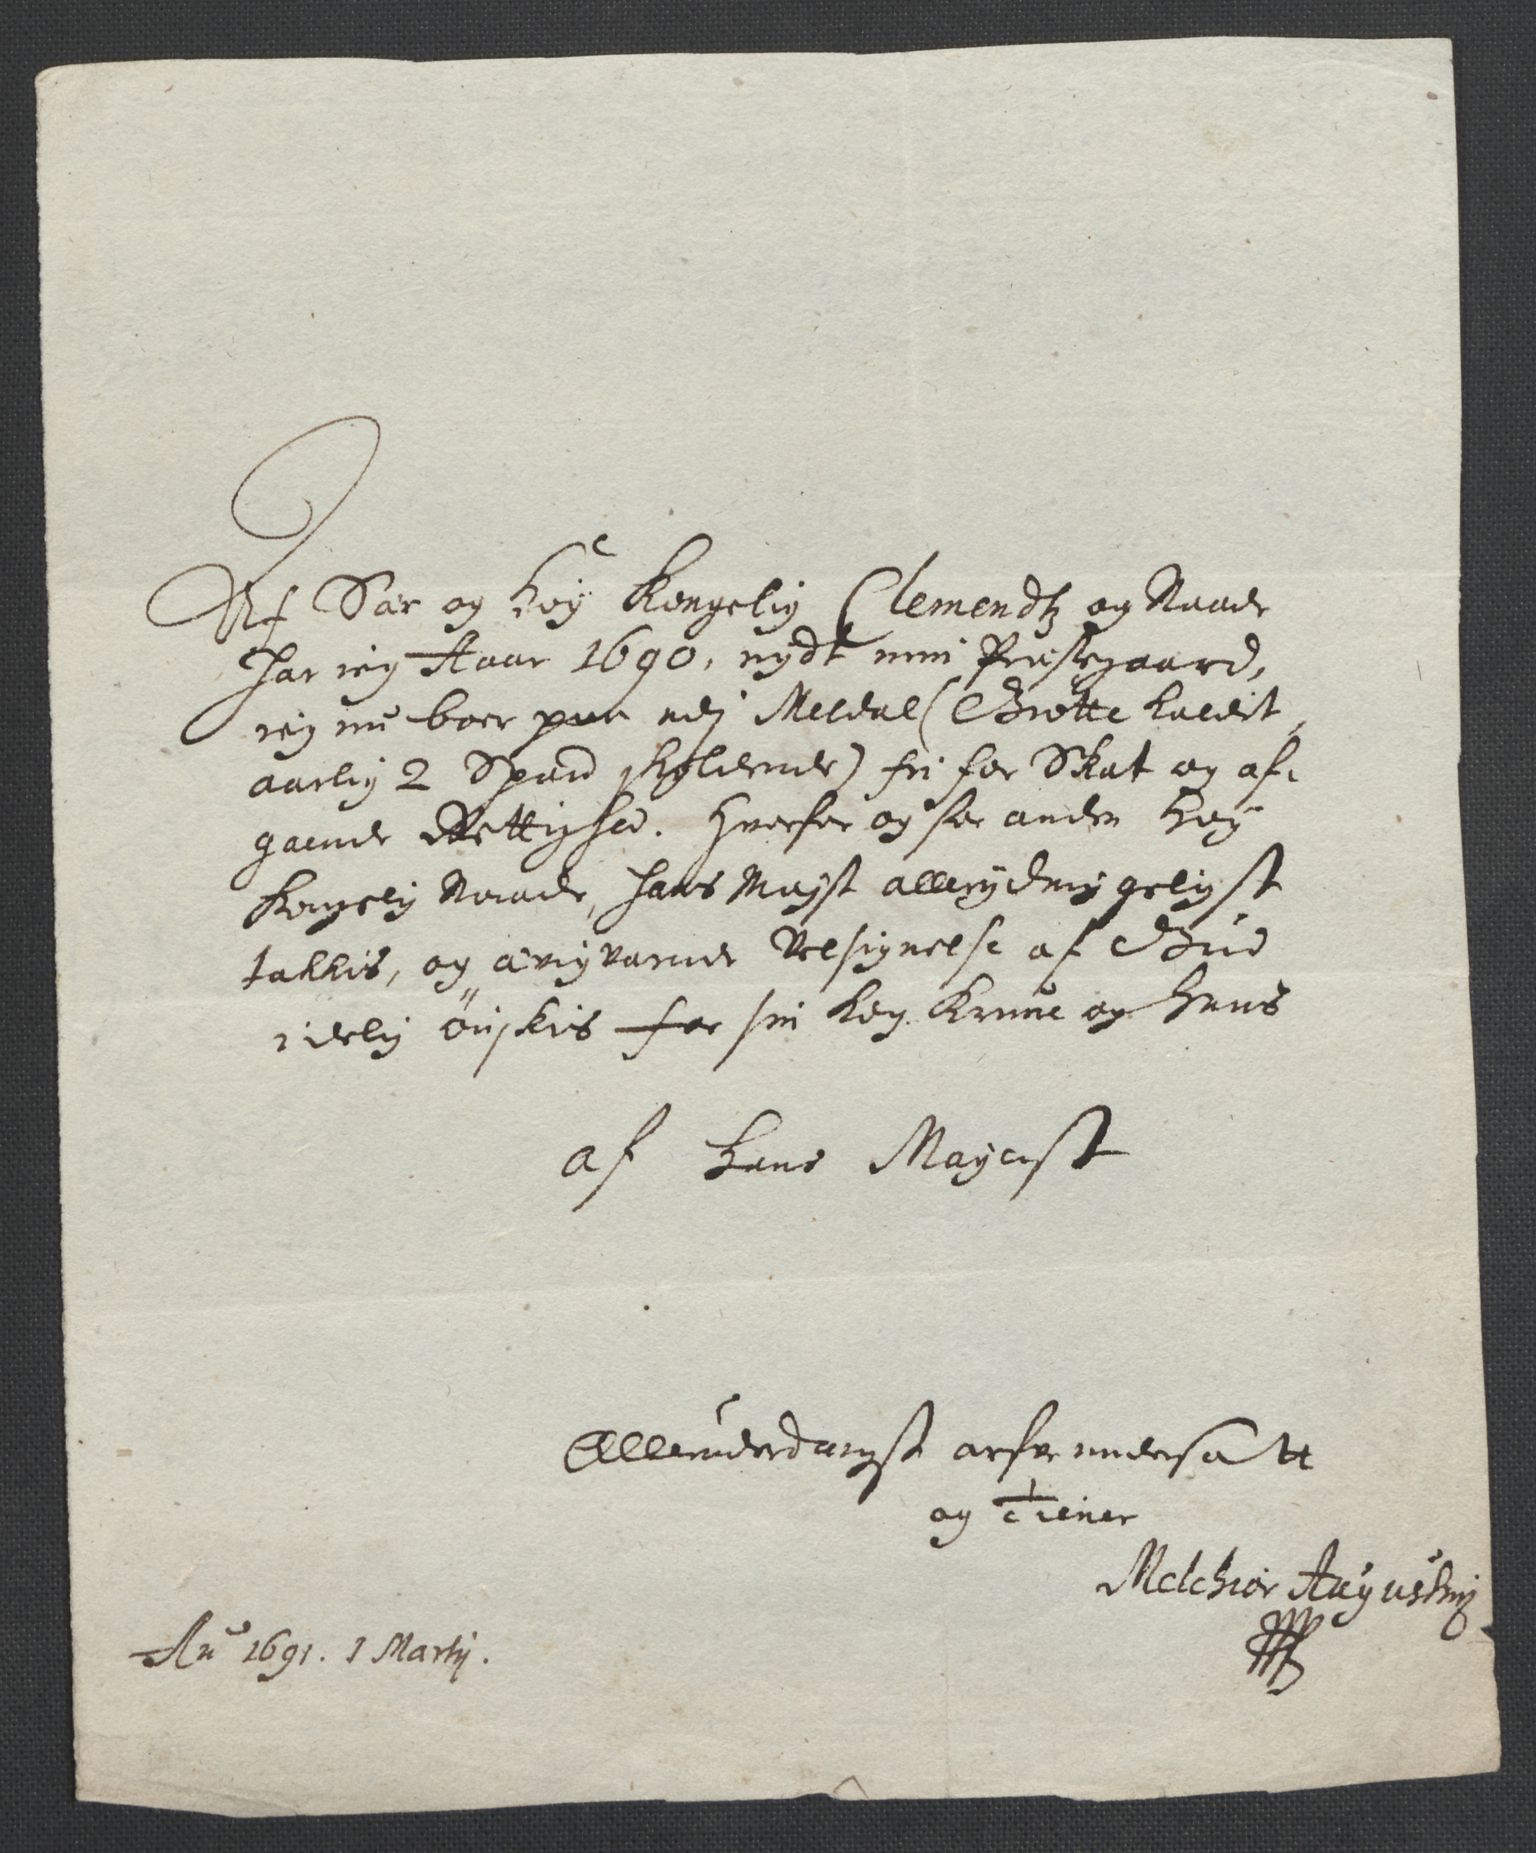 Af Sær og høy Kongelig Clemendtz og Naade
har ieg Aaar 1690, nydt min Præstegaard,
ieg nu boer paa udj Meldal (Grötte kaldit
aarlig 2 Spand skyldende) fri for Skat og af-
gaaende Rettighed. Hvorfor og for anden høy
Kongelig Naade, hans Mayst allerydmygeligst
takkis, og ævigvarende Velsignelse af Gud
idelig önskis for sin høy Krone og Huus
af Hans Mayest
Allerunderdanigst arfve undersatt
og Tiener
Melchior Augustinj
An° 1691. 1 Martij.